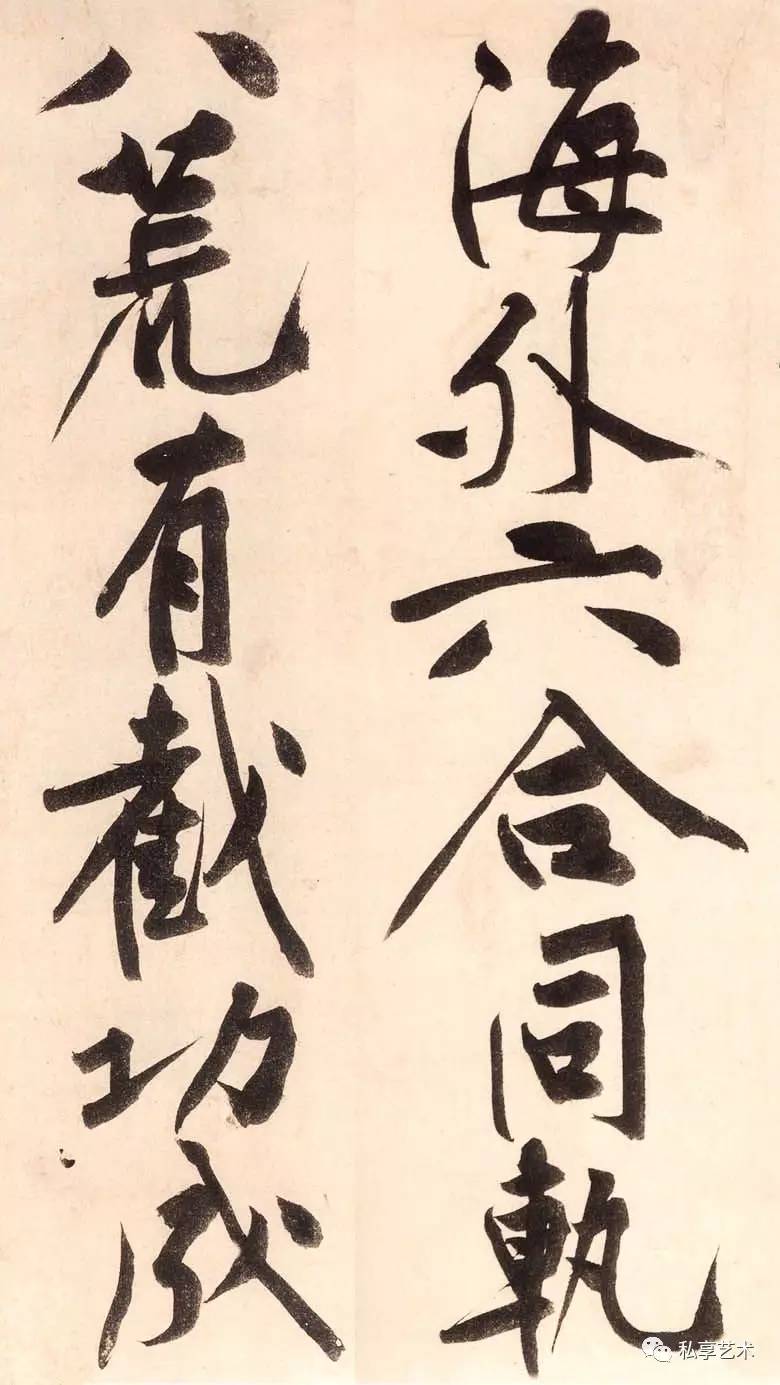 海外六合同軌
八荒有截功成
私享艺术